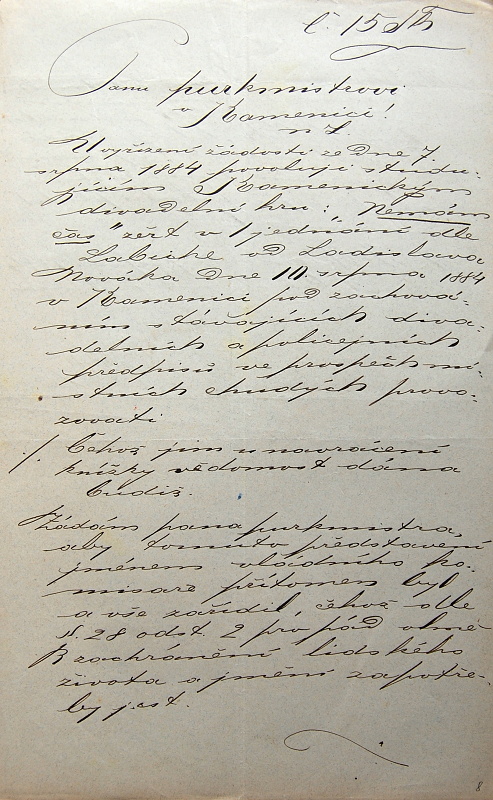 č. 15
Panu purkmistrovi
v Kamenici!
n L.
U vyřízení žádosti ze dne 7.
srpna 1884 povoluji studu-
jícím Kamenickým
divadelní hru: „Nemám
čas" žert v 1 jednání dle
Labiche od Ladislava
Nováka dne 10. srpna 1884
v Kamenici pod zachová-
ním stávajících diva-
delních a policejních
předpisů ve prospěch mí-
stních chudých provo-
zovati
./. Čehož jim u navrácení
knížky vědomost dána
budiž.
Žádám pana purkmistra,
aby tomuto představení
jménem vládního ko-
misaře přítomen byl
a vše zařídil, čehož dle
§. 28 odst. 2 pro pád
B zachránění lidského
života a jmění zapotře-
by jest.
8